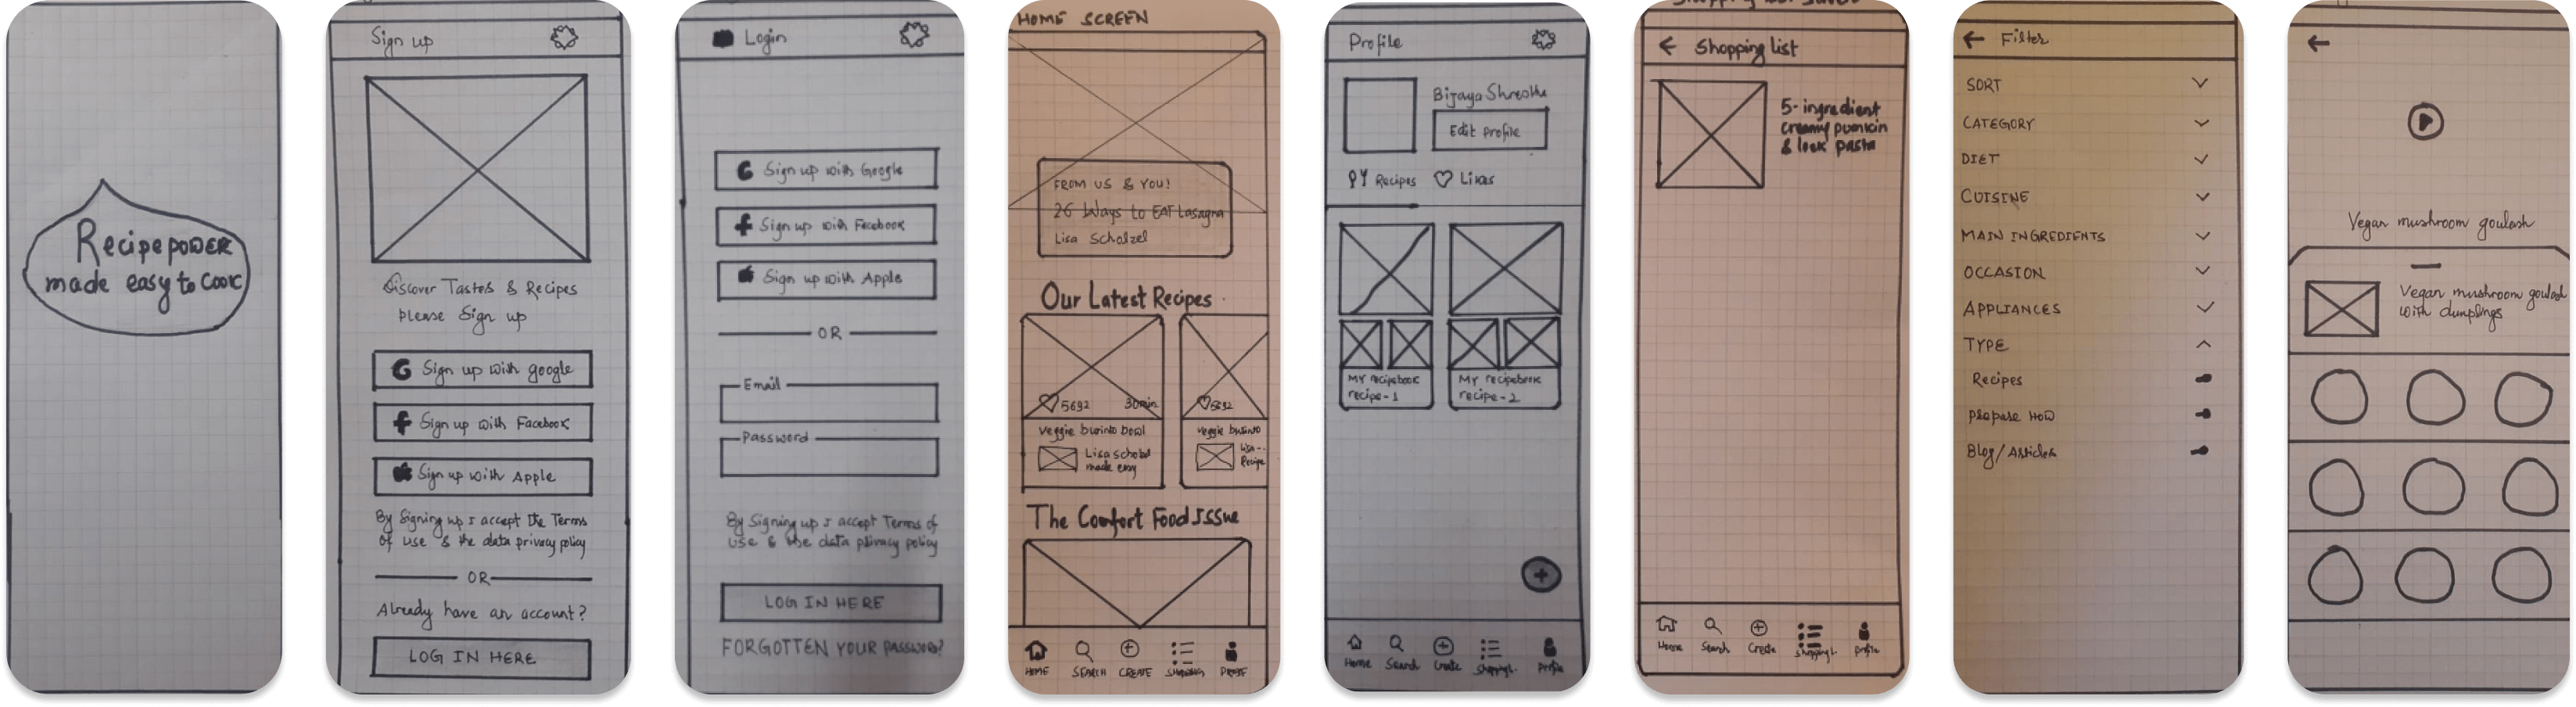 Recipe power
made easy to cook
Sign up
Discover Tastes & Recipes
please Sign up
Sign up with google
Sign up with Facebook
Sign up with Apple
By Signing up I accept the Terms
of use & the data privacy policy
OR
Already have an account?
LOG IN HERE
Login
Sign up with Google
Sign up with Facebook
Sign up with Apple
OR
Email
Password
By Signing up I accept Terms of
use & the data privacy policy
LOG IN HERE
FORGOTTEN YOUR PASSWORD?
HOME SCREEN
FROM US & YOU!
26 Ways to EAT Lasagna
Lisa Scholzel
Our Latest Recipes
5692 30min
5692
veggie burrito bowl
Lisa schobel
made easy
veggie burrito
Lisa--
Recipe
The Comfort Food Issue
HOME SEARCH CREATE SHOPPING PROFILE
Profile
Bijaya Shrestha
Edit profile
Recipes Likes
MY recipebook
recipe-1
MY recipebook
recipe-2
Home Search Create Shoppingl. Profile
Shopping list
5-ingredient
creamy pumkin
& leek pasta
Home Search Create Shoppingl. Profile
Filter
SORT
CATEGORY
DIET
CUISINE
MAIN INGREDIENTS
OCCASION
APPLIANCES
TYPE
Recipes
prepare HOW
Blog/Articles
Vegan mushroom goulash
Vegan mushroom goulash
with dumplings